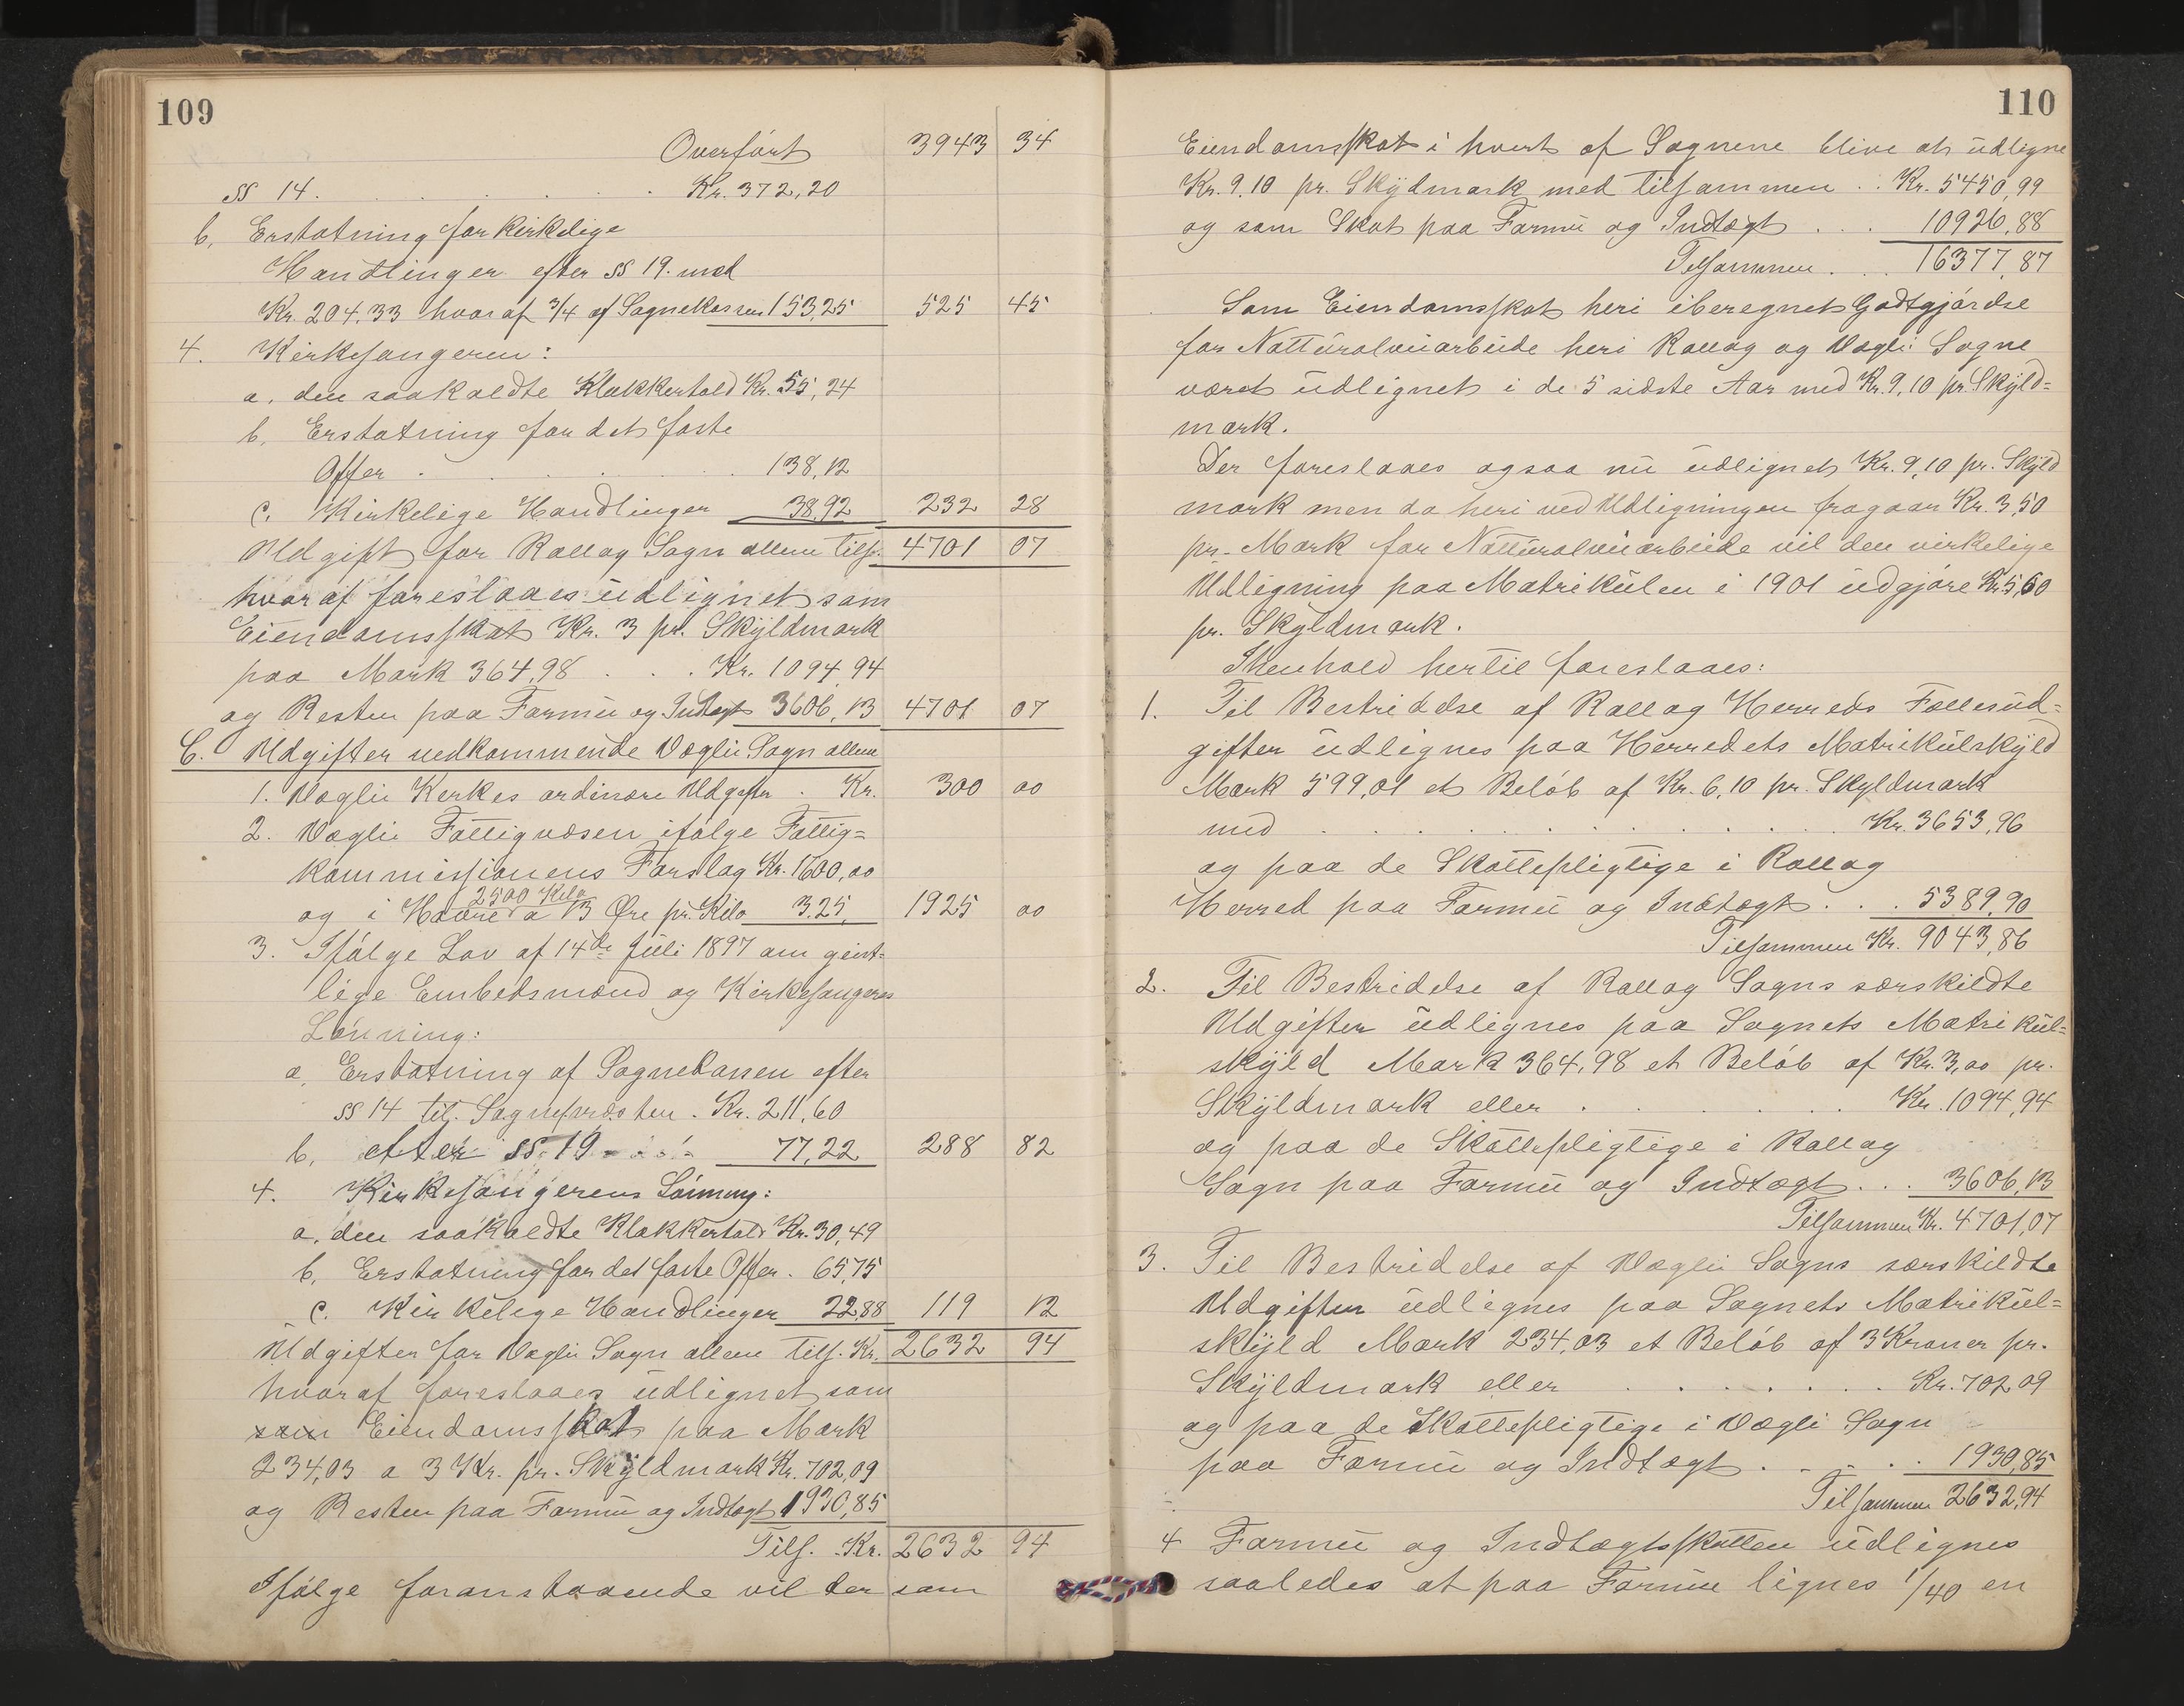 109
Overført 3943 34
§§ 14 . . . . . . Kr. 372,20
b, Erstatning for kirkelige
Handlinger efter §§ 19. med
Kr. 204.33 hvoraf 3/4 af Sognekassen 153,25 525 45
4. Kirkesangeren:
a, den saakaldte Klokkertold Kr. 55,24
b, Erstatning for det faste
Offer . . . . 138,12
c. Kirkelige Handlinger 38,92 232 28
Udgift for Rollag Sogn allene tils. 4701 07
hvoraf foreslaaes udlignet som
Eiendomsskat Kr. 3 pr. Skyldmark
paa Mark 364,98 . . . Kr. 1094,94
og Resten paa Formue og Indtægt 3606,13 4701 07
C. Udgifter vedkommende Væglie Sogn allene
1. Væglie Kerkes ordinære Udgifter . Kr. 300 00
2. Væglie Fattigvæsen ifølge Fattig=
kommissionens Forslag Kr. 1600,00
2500 Kilo
og i Havre a 13 Øre pr. Kilo 325, 1925 00
3. Ifølge Lov af 14de Juli 1897 om geist=
lige Embedsmænd og Kirkesangeres
Lønning:
a, Erstatning af Sognekassen efter
§§ 14 til Sognepræsten . Kr. 211,60
b, efter §§ 19 - . . . 77,22 288 82
4. Kirkesangerens Lønning:
a. den saakaldte Klokkertold Kr. 30,49
b, Erstatning for det faste Offer . 65,75
c. Kirkelige Handlinger 22,88 119 12
Udgifter for Væglie Sogn allene tils. Kr. 2632 94
hvoraf foreslaaes udlignet som
som Eiendomsskat paa Mark
234,03 a 3 Kr. pr. Skyldmark Kr. 702,09
og Resten paa Formue og Indtægt 1930,85
Tils. Kr. 2632 94
Ifølge foranstaaende vil der som
110
Eiendomsskat i hvert af Sognene blive at udligne
Kr. 9.10 pr. Skyldmark med tilsammen . . Kr. 5450,99
og som Skat paa Formue og Indtægt . . . 10926,88
Tilsammen . . . 16377,87
Som Eiendomsskat heri iberegnet Godtgjørelse
for Natturalveiarbeide heri Rollag og Vægli Sogne
været udlignet i de 5 sidste Aar med Kr. 9,10 pr. Skyld=
mark.
Der foreslaaes ogsaa nu udlignet Kr. 9,10 pr. Skyld
mark men da heri ved Udligningen fragaar Kr. 3,50
pr. Mark for Natturalveiarbeide vil den virkelige
Udligning paa Matrikulen i 1901 udgjøre Kr. 5,60
pr. Skyldmark.
I henhold hertil foreslaaes:
1. Til Bestridelse af Rollag Herreds Fællesud=
gifter udlignes paa Herredets Matrikulskyld
Mark 599,01 et Beløb af Kr. 6,10 pr. Skyldmark
med . . . . . . . . . Kr. 3653,96
og paa de Skattepligtige i Rollag
Herred paa Formue og Indtægt . . . 5389,90
Tilsammen Kr. 9043,86
2. Til Bestridelse af Rollag Sogns særskildte
Udgifter udlignes paa Sognets Matrikul=
skyld Mark 364,98 et Beløb af Kr. 3,00 pr.
Skyldmark eller . . . . . . Kr. 1094,94
og paa de Skattepligtige i Rollag
Sogn paa Formue og Indtægt . . . 3606,13
Tilsammen Kr. 4701,07
3. Til Bestridelse af Væglie Sogns særskildte
Udgifter udlignes paa Sognets Matrikul=
skyld Mark 234,03 et Beløb af 3 Kroner pr.
Skyldmark eller . . . . . . Kr. 702,09
og paa de Skattepligtige i Vægli Sogn
paa Formue og Indtægt . . . . 1930,85
Tilsammen 2632,94
4 Formue og Indtægtsskatten udlignes
saaledes at paa Formue lignes 1/40 en